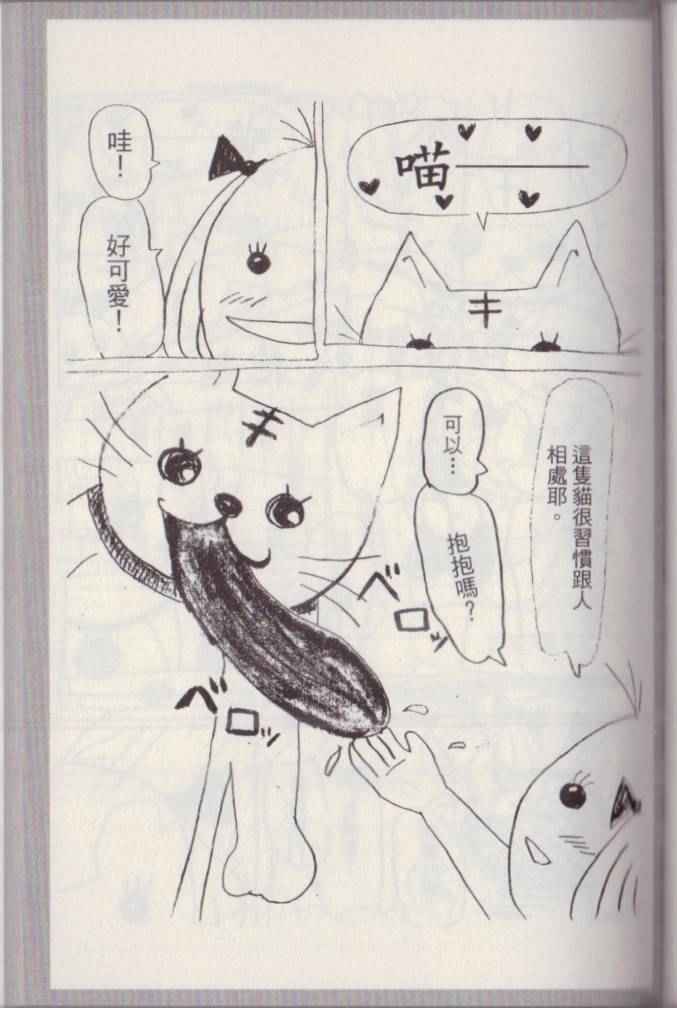 喵———
哇！
好可愛！
這隻貓很習慣跟人
相處耶。
可以…
抱抱嗎？
ベロッ
ベロッ